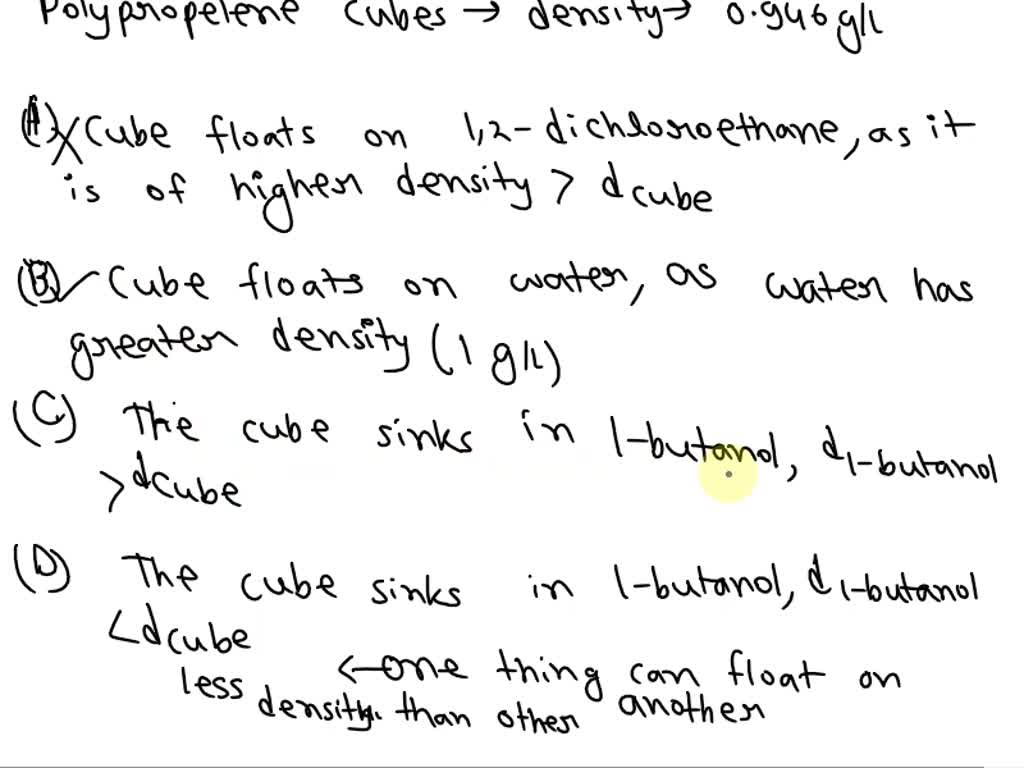 Polypropelene Cubes → density → 0.946 g/L
(A) X Cube floats on 1,2-dichloroethane, as it
is of higher density > dcube
(B) ✓ Cube floats on water, as water has
greater density (1 g/L)
(C) The cube sinks in 1-butanol, d1-butanol
> dcube
(D) The cube sinks in 1-butanol, d1-butanol
< dcube
← one thing can float on
less density than other another